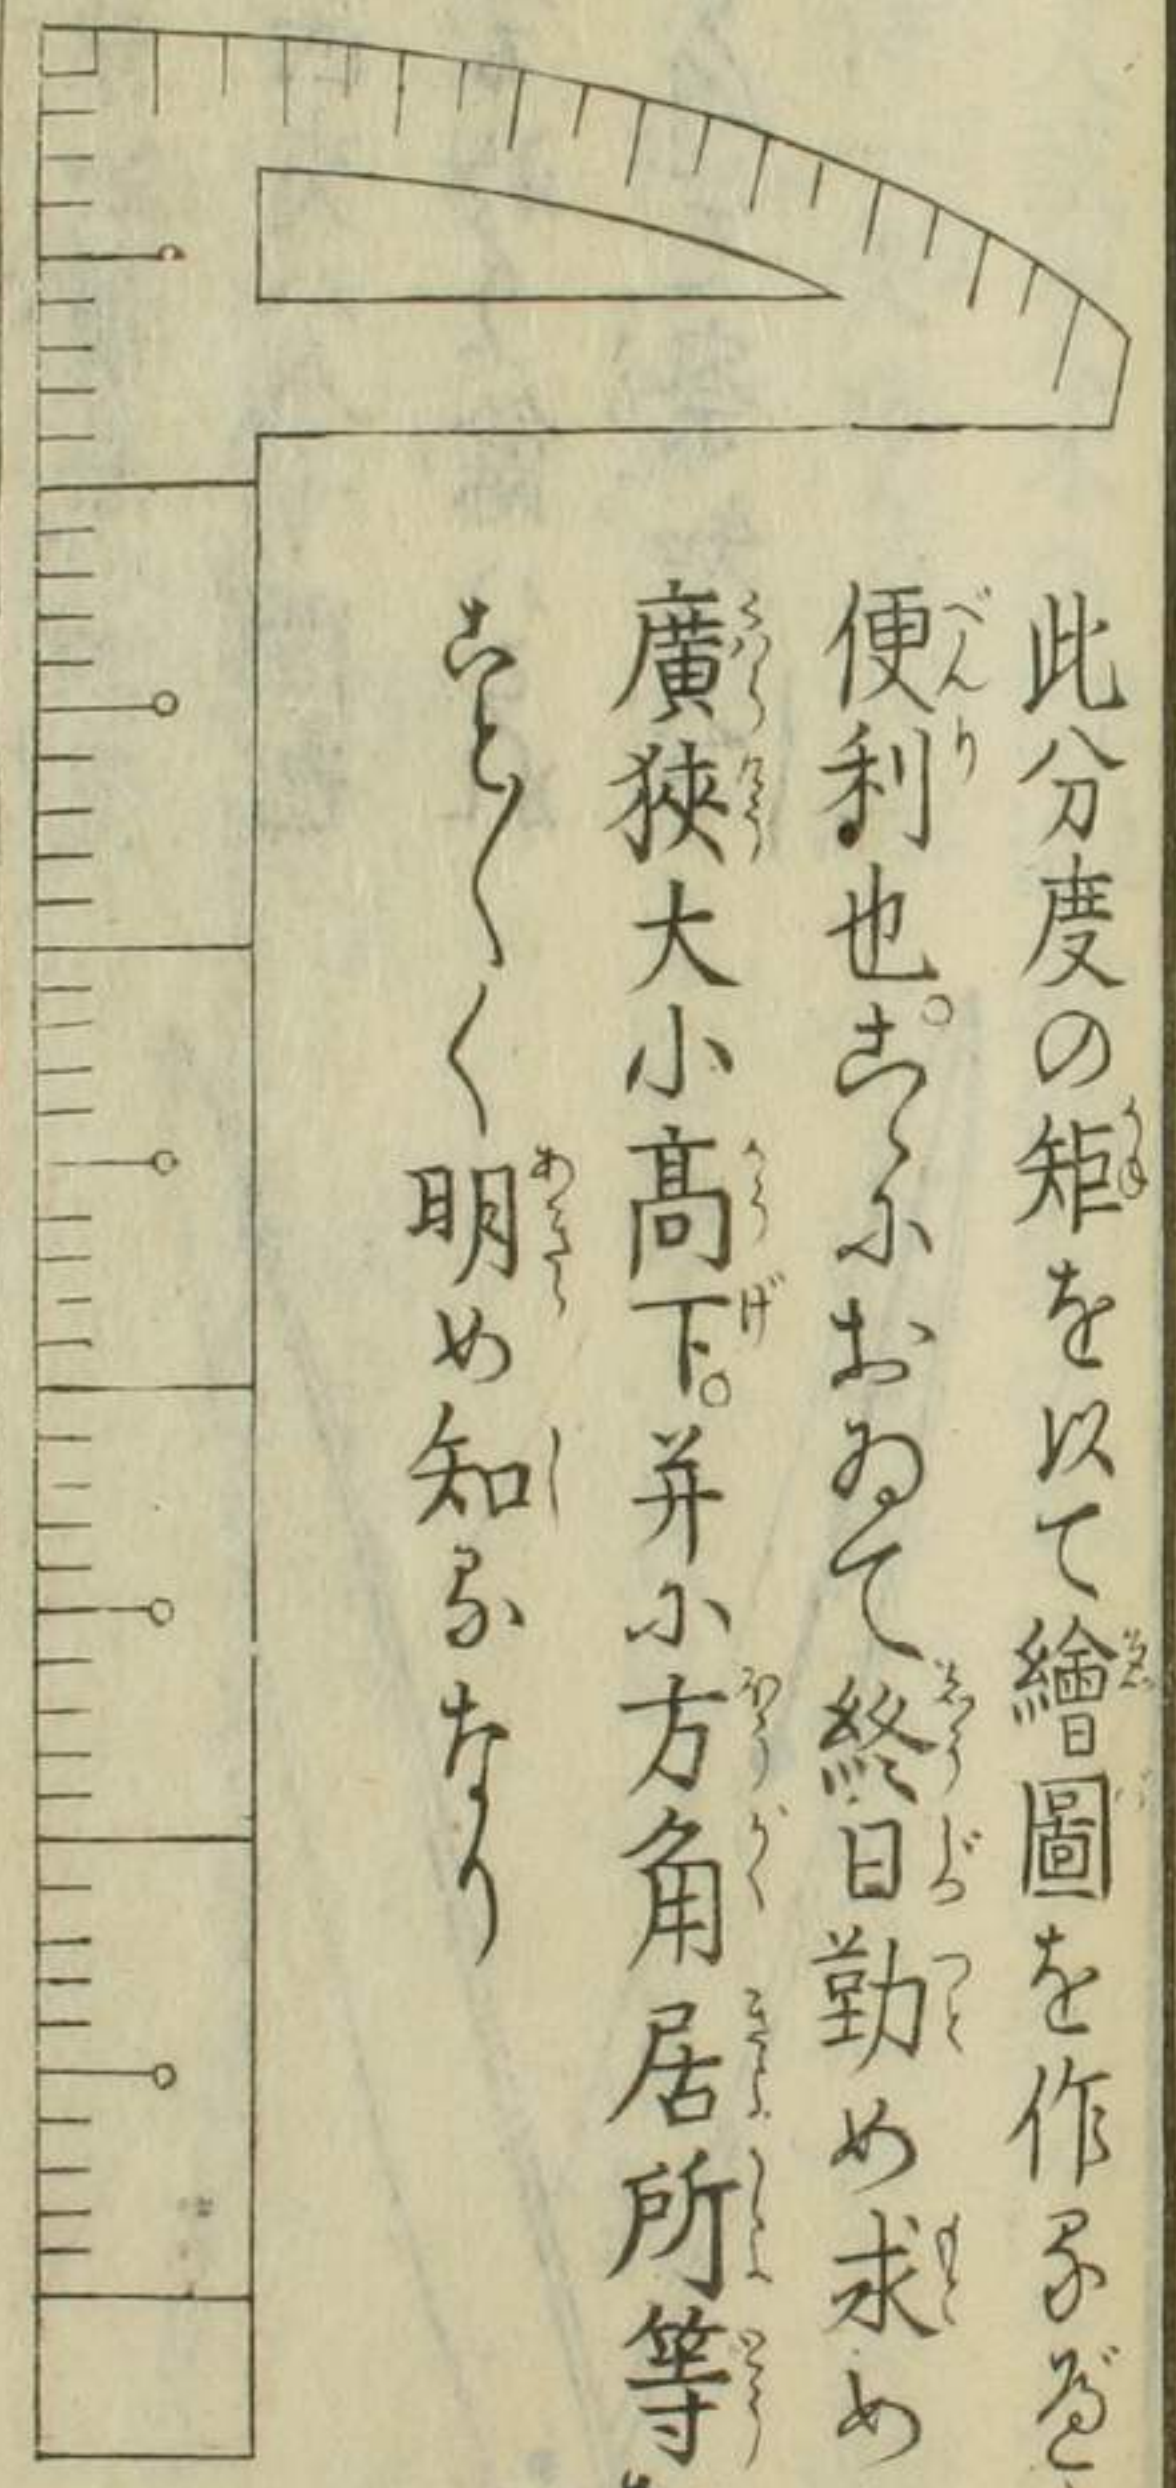 此分度の矩を以て繪圖を作るゟ
便利也。こゝにおゐて終日勤め求め
廣狹大小高下。并に方角居所等
こと〴〵く明め知るなり